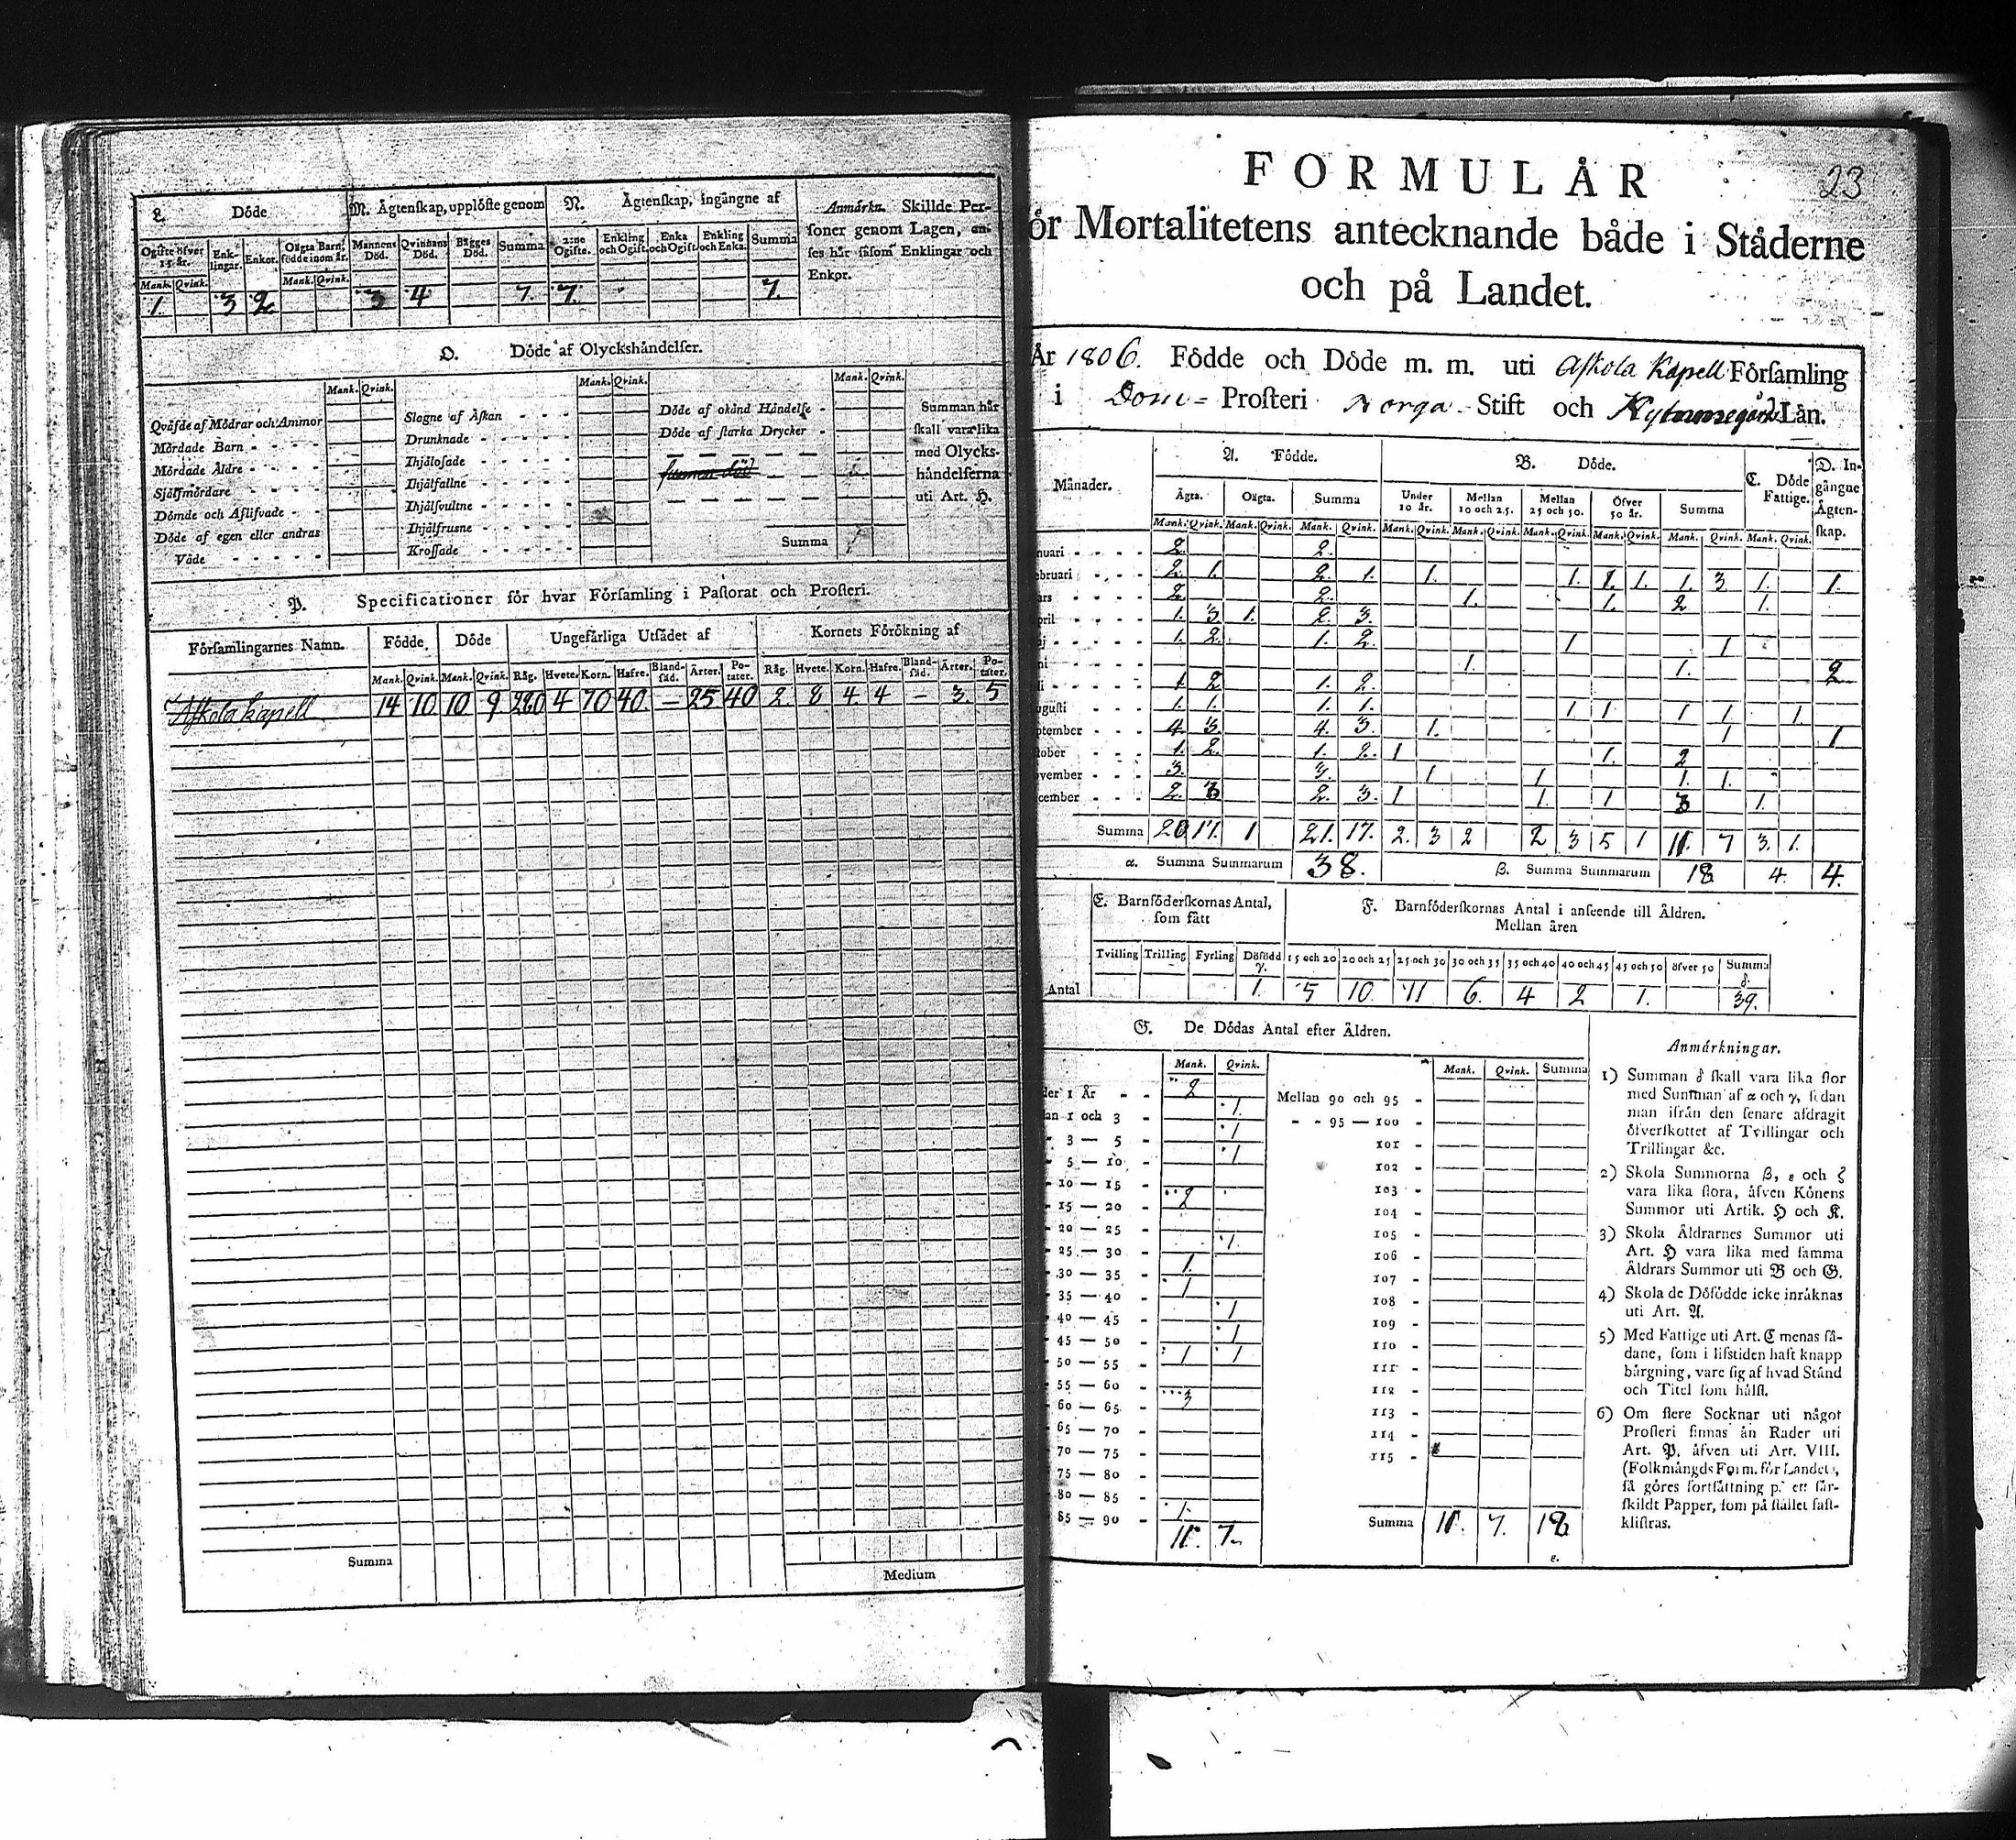 L. Döde
M. Ägtenskap, upplöste genom
N. Ägtenskap, ingångne af
Anmärkn. Skillde Per-
soner genom Lagen, an-
ses här såsom Enklingar och
Enkor.
Ogifte öfver 15 år. Enk-lingar. Enkor. Oägta Barn, födde inom år. Mannens Död. Qvinnans Död. Bägges Död. Summa 2:ne Ogifte. Enkling och Ogift. Enka och Ogift. Enkling och Enka. Summa
Mank. Qvink. Mank. Qvink.
1 3 2 3 4 7. 7. 7.
O. Döde af Olyckshändelser.
Mank. Qvink. Mank. Qvink. Mank. Qvink.
Qväfde af Mödrar och Ammor
Mördade Barn
Mördade Äldre
Själfmördare
Dömde och Aflifvade
Döde af egen eller andras
Våde
Slagne af Åskan
Drunknade
Ihjälosade
Ihjälfallne
Ihjälsvultne
Ihjälfrusne
Krossade
Döde af okänd Händelse
Döde af starka Drycker
Summa
Summan här
skall vara lika
med Olycks-
händelserna
uti Art. H.
P. Specificationer för hvar Församling i Pastorat och Prosteri.
Församlingarnes Namn. Födde Döde Ungefärliga Utsädet af Kornets Förökning af
Mank. Qvink. Mank. Qvink. Råg. Hvete. Korn. Hafre. Bland-säd. Ärter. Po-tater. Råg. Hvete. Korn. Hafre. Bland-säd. Ärter. Po-täter.
Askola kapell 14 10 10 9 220 4 70 40. — 25 40 2. 8 4. 4 — 3. 5
Summa
Medium
23
FORMULÄR
ör Mortalitetens antecknande både i Städerne
och på Landet.
År 1806. Födde och Döde m. m. uti Askola Kapell Församling
i Dom- Prosteri Borgå Stift och Kymmenegårds Län.
Månader. A. Födde. B. Döde. C. Döde Fattige. D. In-gångne Ägten-skap.
Ägta. Oägta. Summa Under 10 år. Mellan 10 och 25. Mellan 25 och 50. Öfver 50 år. Summa
Mank. Qvink. Mank. Qvink. Mank. Qvink. Mank. Qvink. Mank. Qvink. Mank. Qvink. Mank. Qvink. Mank. Qvink. Mank. Qvink.
nuari 2. 2.
ebruari 2. 1. 2. 1. 1. 1. 1. 1. 1. 3 1. 1.
ars 2 2. 1. 1. 2 1.
pril 1. 3 1. 2. 3.
aj 1. 2. 1. 2. 1 1
ni 1. 1. 2
li 1 2 1. 2.
ugusti 1. 1. 1. 1. 1 1 1 1. 1.
ptember 4. 3. 4. 3. 1. 1 1
tober 1. 2. 1. 2. 1 1. 2
vember 3. 3. 1 1 1. 1.
cember 2. 3 2. 3. 1 1. 1 3 1.
Summa 20 17. 1 21. 17. 2. 3 2 2 3 5 1 11. 7 3. 1.
α. Summa Summarum 38. β. Summa Summarum 18 4. 4.
E. Barnföderskornas Antal, som fått
F. Barnföderskornas Antal i anseende till Åldren.
Mellan åren
Tvilling Trilling Fyrling Döfödd γ. 15 och 20 20 och 25 25 och 30 30 och 35 35 och 40 40 och 45 45 och 50 öfver 50 Summa δ.
Antal 1. 5 10. 11 6. 4 2 1. 39.
G. De Dödas Antal efter Åldren.
Mank. Qvink. Mank. Qvink. Summa
der 1 År 2
an 1 och 3 1.
3 — 5 1
5 — 10 1
10 — 15
15 — 20 2
20 — 25
25 — 30 1.
30 — 35 1.
35 — 40 1
40 — 45 1
45 — 50 1
50 — 55 1 1
55 — 60
60 — 65 3
65 — 70
70 — 75
75 — 80
80 — 85
85 — 90 1.
11. 7.
Mellan 90 och 95
95 — 100
101
102
103
104
105
106
107
108
109
110
111
112
113
114
115
Summa 11. 7. 18
ε.
Anmärkningar.
1) Summan δ skall vara lika stor
med Summan af α och γ, sedan
man ifrån den senare afdragit
öfverskottet af Tvillingar och
Trillingar &c.
2) Skola Summorna β, ε och ζ
vara lika stora, äfven Könens
Summor uti Artik. H och K.
3) Skola Åldrarnes Summor uti
Art. H vara lika med samma
Åldrars Summor uti B och G.
4) Skola de Döfödde icke inräknas
uti Art. A.
5) Med Fattige uti Art. C menas så-
dane, som i lifstiden haft knapp
bärgning, vare sig af hvad Stånd
och Titel som hälst.
6) Om flere Socknar uti något
Prosteri finnas än Rader uti
Art. P, äfven uti Art. VIII.
(Folkmängds Form. för Landet,
så göres fortsättning på ett sär-
skildt Papper, som på stället fast-
klistras.